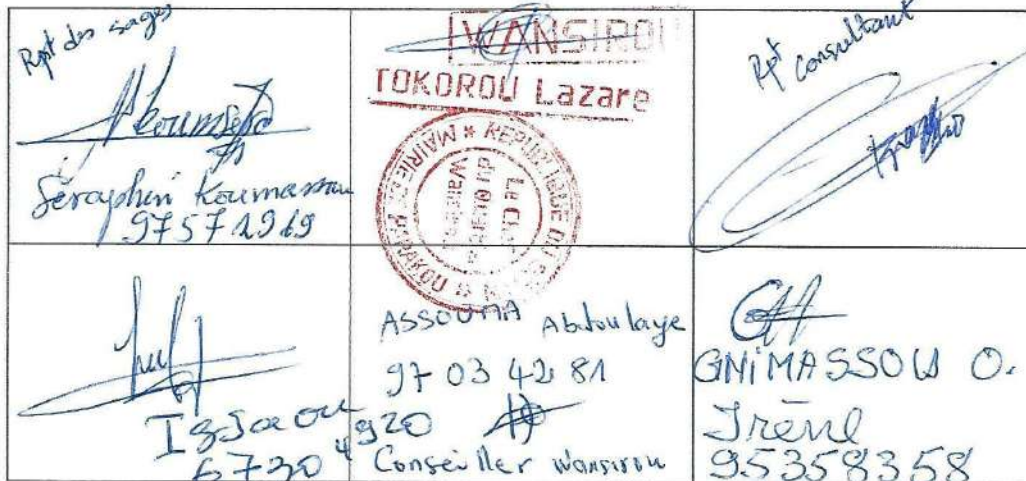 Rpt des sages
Koumassou
Séraphin Koumassou
97571969
WANSIROU
TOKOROU Lazare
MAIRIE DE PARAKOU * REPUBLIQUE DU
Le Chef
du Quartier
Rpt consultant
Issaou
67304920
ASSOUMA Abdoulaye
97 03 42 81
Conseiller Wansirou
GNIMASSOU O.
Irène
95358358